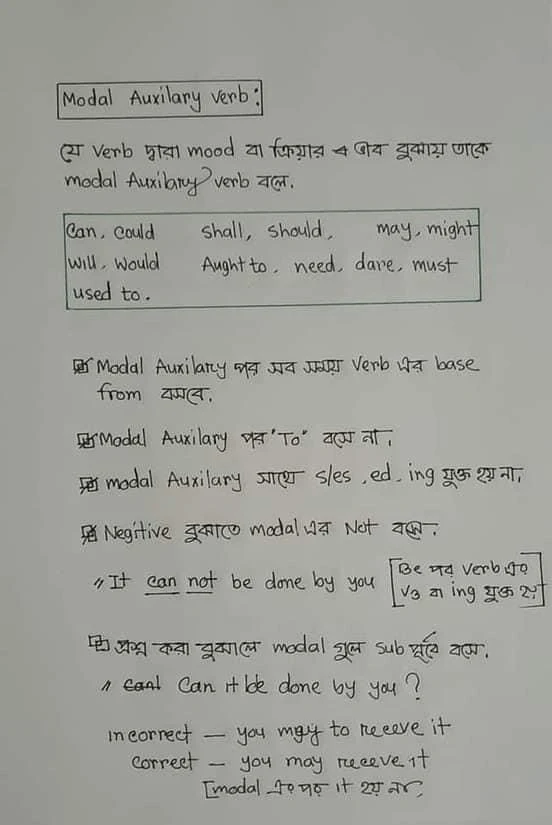 Modal Auxilary verb:
যে verb দ্বারা mood বা ক্রিয়ার ভাব বুঝায় তাকে
modal Auxilary verb বলে.
Can, Could shall, should, may, might
will, would Aught to, need, dare, must
used to.
Modal Auxilary পর সব সময় Verb এর base
from বসবে.
Modal Auxilary পর "To" বসে না.
modal Auxilary সাথে s/es, ed, ing যুক্ত হয় না,
Negitive বুঝাতে modal এর Not বসে.
" It can not be done by you [Be পর verb এর
V3 বা ing যুক্ত হয়]
প্রশ্ন করা বুঝালে modal গুলে sub পূর্বে বসে.
" Can it be done by you?
incorrect — you may to receve it
Correct — you may receve it
[modal এর পর it হয় না,